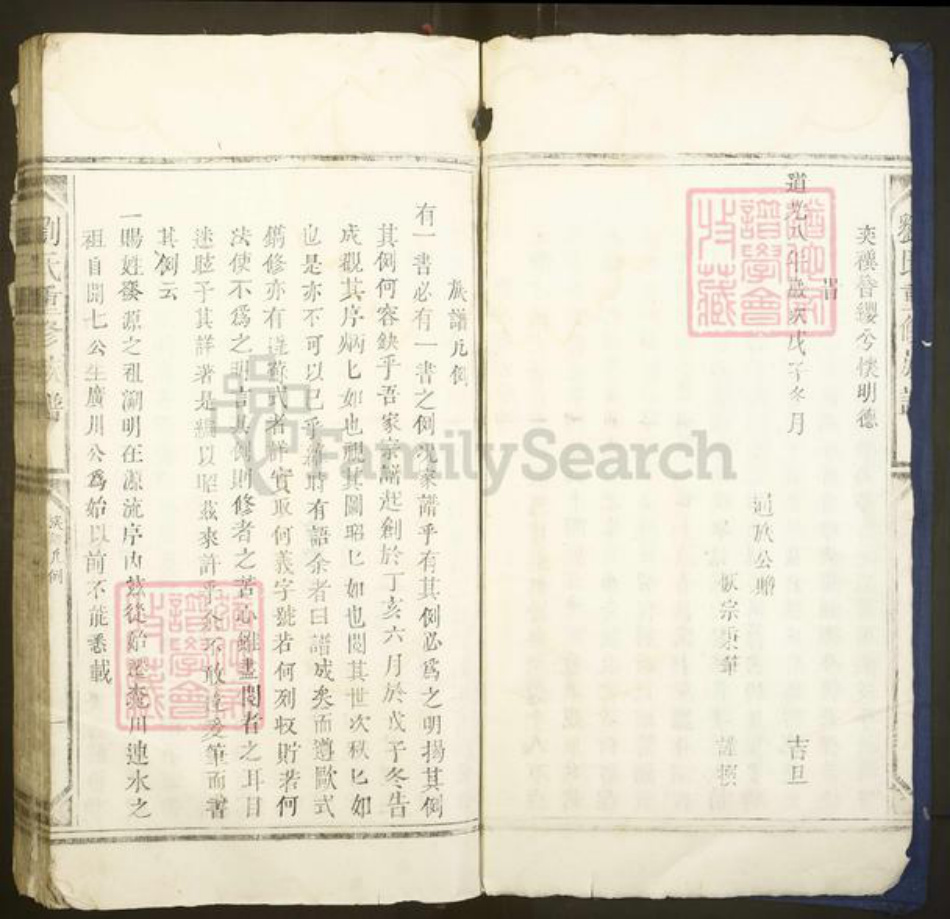 奕禩簪纓兮懷明德
旹
道光八年歲次戊子冬月 吉旦
族公贈
宗秉筆 謹撰
劉氏重修族譜
族譜凡例
有一書必有一書之例况家譜乎有其例必為之明揚其例
其例何容缺乎吾家宗譜起創於丁亥六月於戊子冬告
成觀其序炳匕如也視其圖昭匕如也閱其世次秩匕如
也是亦不可以已乎維時有語余者曰譜成矣而遵歐式
鐫修亦有遵蘇式者詳實取何義字號若何列收貯若何
法使不為之明言其例則修者之苦心雖盡閱者之耳目
迷眩予其詳著是編以昭茲來許乎余不敢違爰筆而書
其例云
一賜姓發源之祖溯明在源流序内茲從始遷 川連水之
祖自開七公生廣川公為始以前不能悉載
劉氏重修族譜
凡例
一
猶他家譜學會收藏
猶他家譜學會收藏
FamilySearch